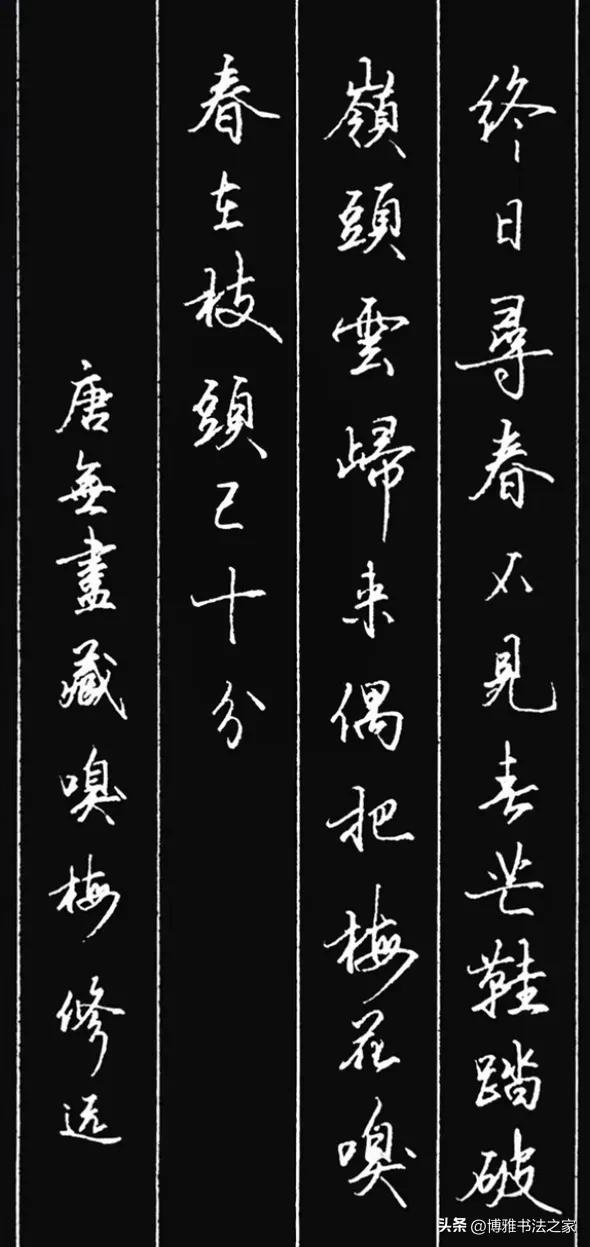 終日尋春不見春芒鞋踏破
嶺頭雲歸来偶把梅花嗅
春在枝頭已十分
唐無盡藏嗅梅修远
头条 @博雅书法之家